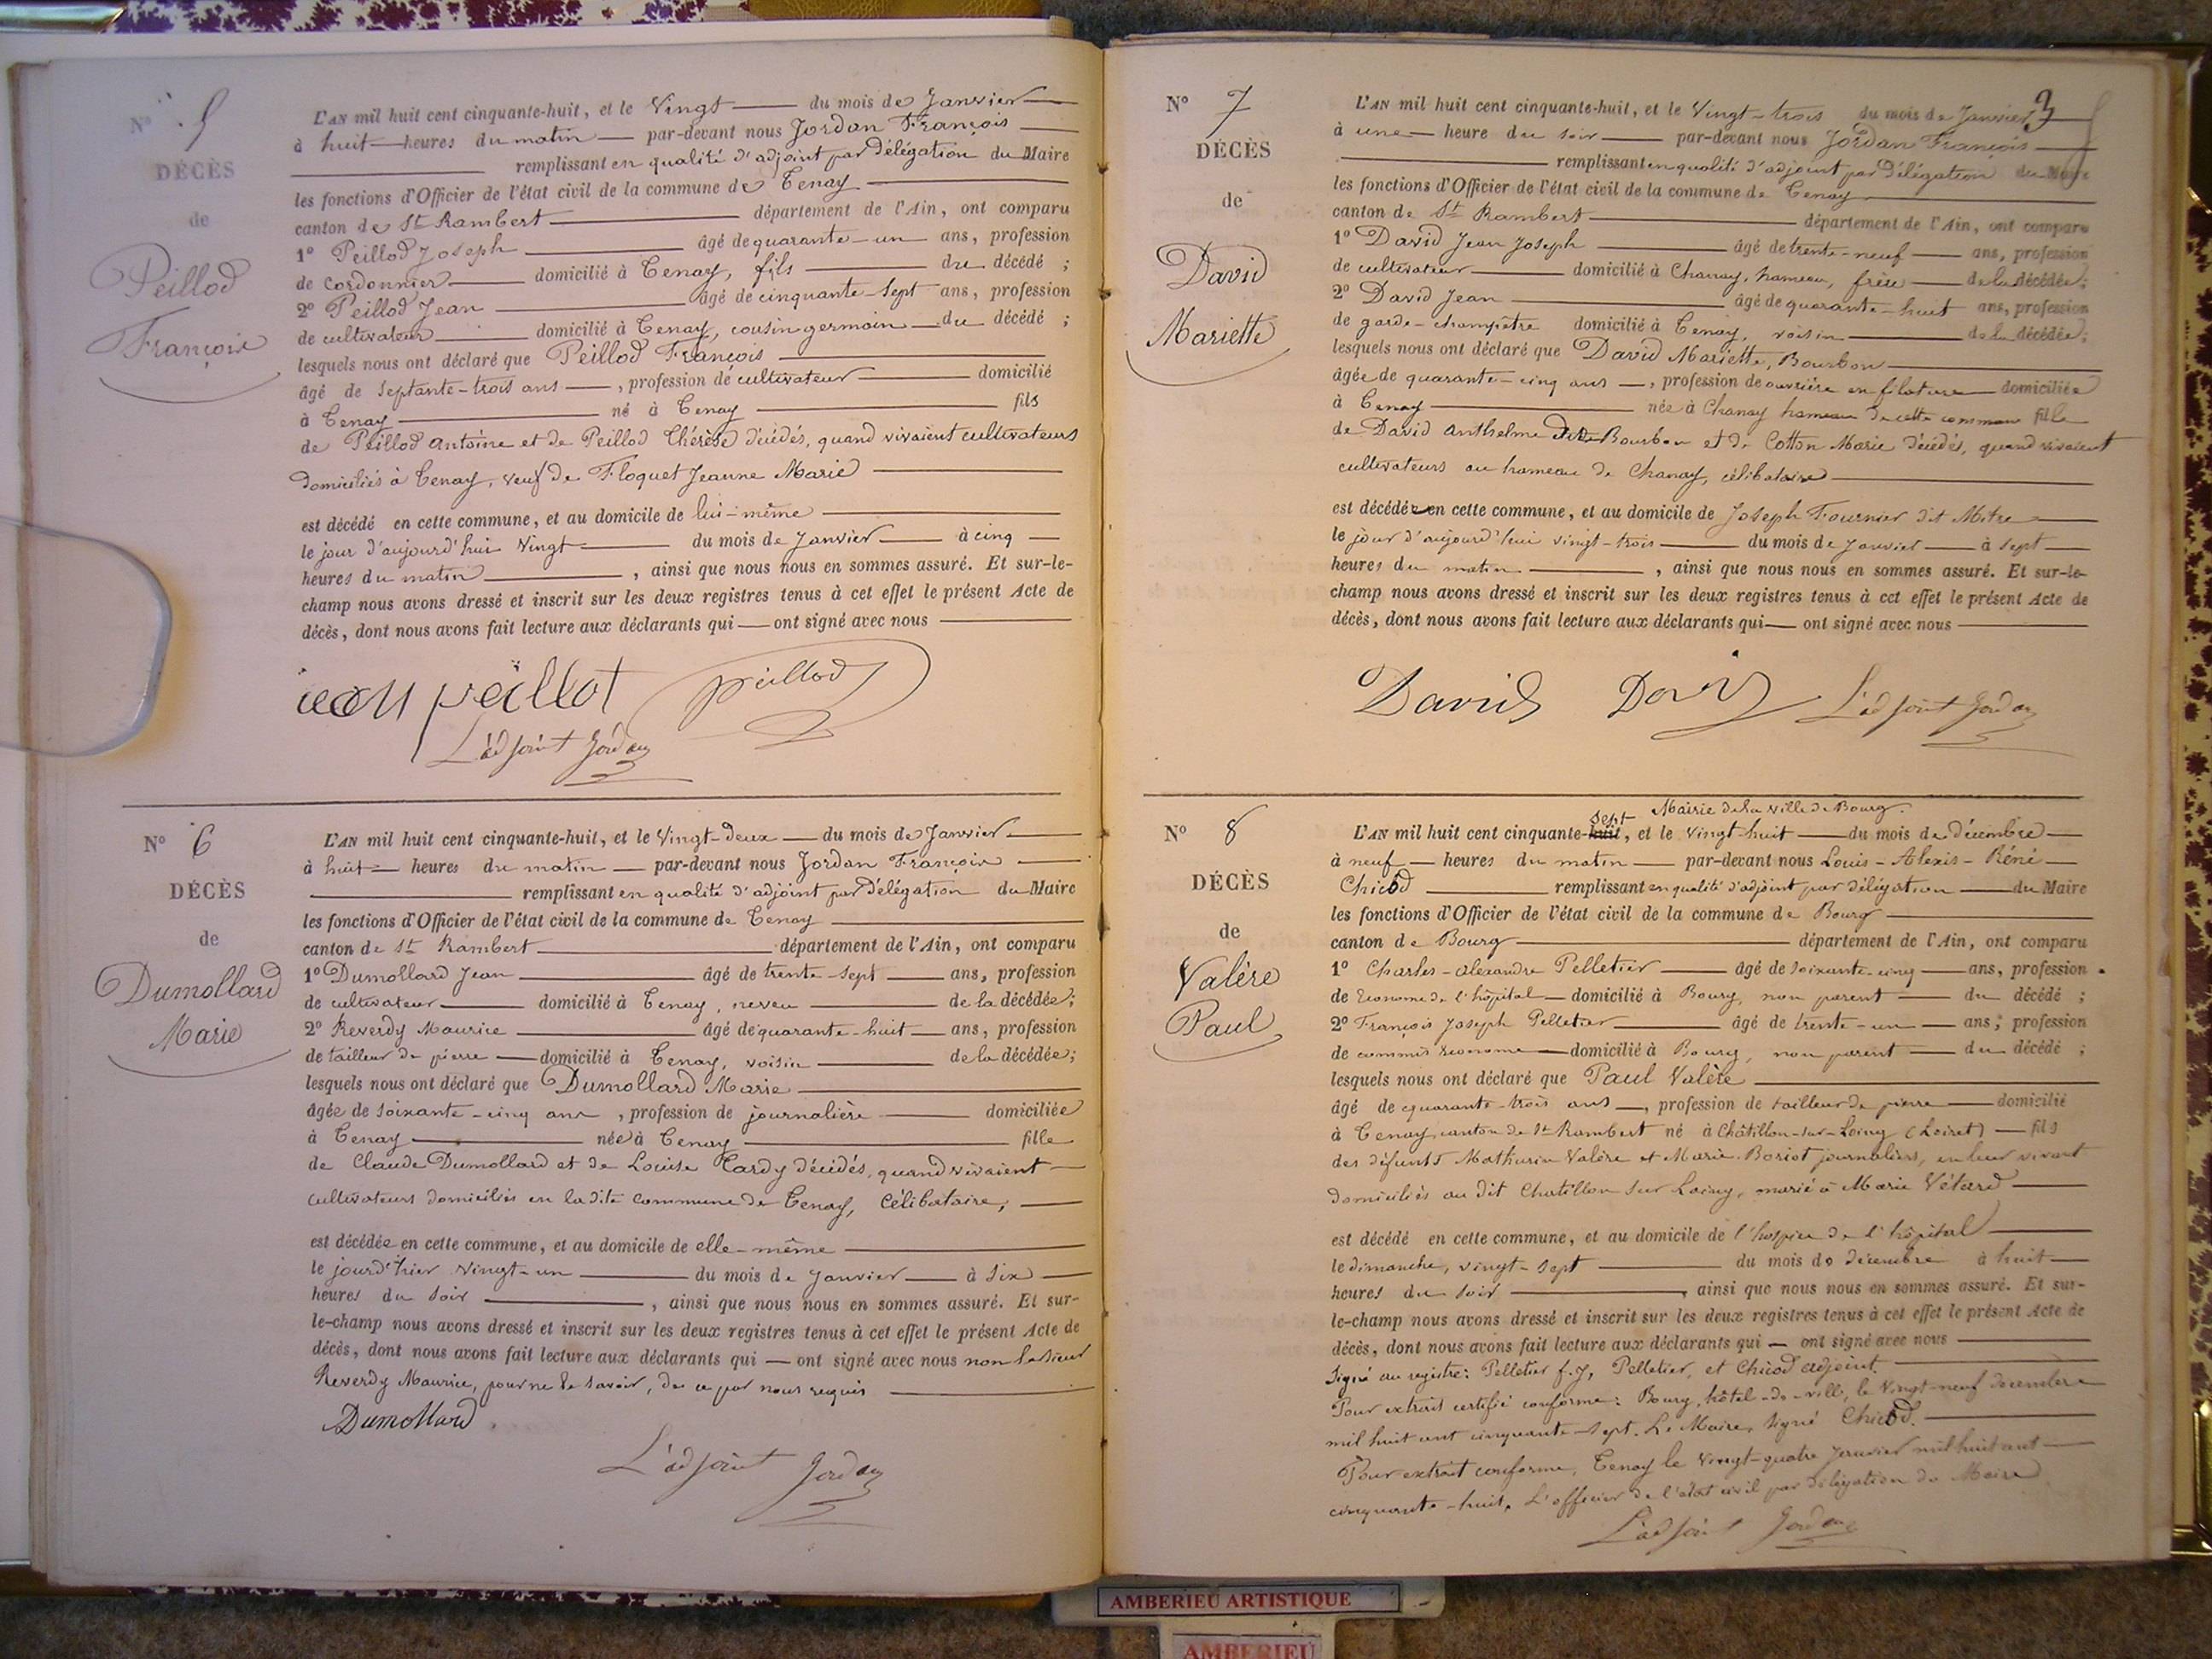 N° 5
DÉCÈS
de
Peillod
François
L'AN mil huit cent cinquante-huit, et le Vingt du mois de Janvier
à huit heures du matin par-devant nous Jordan François
remplissant en qualité d'adjoint par délégation du Maire
les fonctions d'Officier de l'état civil de la commune de Tenay
canton de St Rambert département de l'Ain, ont comparu
1° Peillod Joseph âgé de quarante-un ans, profession
de cordonnier domicilié à Tenay, fils du décédé ;
2° Peillod Jean âgé de cinquante-sept ans, profession
de cultivateur domicilié à Tenay, cousin germain du décédé ;
lesquels nous ont déclaré que Peillod François
âgé de septante-trois ans, profession de cultivateur domicilié
à Tenay né à Tenay fils
de Peillod Antoine et de Peillod Thérèse décédés, quand vivaient cultivateurs
domiciliés à Tenay, veuf de Floquet Jeanne Marie
est décédé en cette commune, et au domicile de lui-même
le jour d'aujourd'hui Vingt du mois de Janvier à cinq
heures du matin, ainsi que nous nous en sommes assuré. Et sur-le-
champ nous avons dressé et inscrit sur les deux registres tenus à cet effet le présent Acte de
décès, dont nous avons fait lecture aux déclarants qui ont signé avec nous
jean peillot peillod
L'adjoint Jordan
N° 6
DÉCÈS
de
Dumollard
Marie
L'AN mil huit cent cinquante-huit, et le Vingt-deux du mois de Janvier
à huit heures du matin par-devant nous Jordan François
remplissant en qualité d'adjoint par délégation du Maire
les fonctions d'Officier de l'état civil de la commune de Tenay
canton de St Rambert département de l'Ain, ont comparu
1° Dumollard Jean âgé de trente-sept ans, profession
de cultivateur domicilié à Tenay, neveu de la décédée;
2° Reverdy Maurice âgé de quarante-huit ans, profession
de tailleur de pierre domicilié à Tenay, voisin de la décédée;
lesquels nous ont déclaré que Dumollard Marie
âgée de soixante-cinq ans, profession de journalière domiciliée
à Tenay née à Tenay fille
de Claude Dumollard et de Louise Tardy décédés, quand vivaient
cultivateurs domiciliés en la dite commune de Tenay, célibataire,
est décédée en cette commune, et au domicile de elle-même
le jour d'hier Vingt-un du mois de Janvier à six
heures du soir, ainsi que nous nous en sommes assuré. Et sur-
le-champ nous avons dressé et inscrit sur les deux registres tenus à cet effet le présent Acte de
décès, dont nous avons fait lecture aux déclarants qui ont signé avec nous non le sieur
Reverdy Maurice, pour ne le savoir, de ce par nous requis
Dumollard
L'adjoint Jordan
3
N° 7
DÉCÈS
de
David
Mariette
L'AN mil huit cent cinquante-huit, et le Vingt-trois du mois de Janvier
à une heure du soir par-devant nous Jordan François
remplissant en qualité d'adjoint par délégation du Maire
les fonctions d'Officier de l'état civil de la commune de Tenay
canton de St Rambert département de l'Ain, ont comparu
1° David Jean Joseph âgé de trente-neuf ans, profession
de cultivateur domicilié à Chanay, hameau, frère de la décédée;
2° David Jean âgé de quarante-huit ans, profession
de garde-champêtre domicilié à Tenay, voisin de la décédée;
lesquels nous ont déclaré que David Mariette, Bourbon
âgée de quarante-cinq ans, profession de ouvrière en filature domiciliée
à Tenay née à Chanay hameau de cette commune fille
de David Anthelme dit Bourbon et de Cotton Marie décédés, quand vivaient
cultivateurs au hameau de Chanay, célibataire
est décédée en cette commune, et au domicile de Joseph Fournier dit Mitre
le jour d'aujourd'hui vingt-trois du mois de Janvier à sept
heures du matin, ainsi que nous nous en sommes assuré. Et sur-le-
champ nous avons dressé et inscrit sur les deux registres tenus à cet effet le présent Acte de
décès, dont nous avons fait lecture aux déclarants qui ont signé avec nous
David David L'adjoint Jordan
N° 8
DÉCÈS
de
Valère
Paul
Mairie de la ville de Bourg.
sept
L'AN mil huit cent cinquante-huit, et le Vingt-huit du mois de décembre
à neuf heures du matin par-devant nous Louis-Alexis-Réné
Chicod remplissant en qualité d'adjoint par délégation du Maire
les fonctions d'Officier de l'état civil de la commune de Bourg
canton de Bourg département de l'Ain, ont comparu
1° Charles-Alexandre Pelletier âgé de soixante-cinq ans, profession
de Econome de l'hôpital domicilié à Bourg, non parent du décédé ;
2° François Joseph Pelletier âgé de trente-un ans, profession
de commis économe domicilié à Bourg, non parent du décédé ;
lesquels nous ont déclaré que Paul Valère
âgé de quarante-trois ans, profession de tailleur de pierre domicilié
à Tenay, canton de St Rambert né à Châtillon-sur-Loing (Loiret) fils
des défunts Mathurin Valère et Marie Boriot journaliers, en leur vivant
domiciliés au dit Chatillon sur Loing, marié à Marie Vétard
est décédé en cette commune, et au domicile de l'hospice de l'hôpital
le dimanche, vingt-sept du mois de décembre à huit
heures du soir, ainsi que nous nous en sommes assuré. Et sur-
le-champ nous avons dressé et inscrit sur les deux registres tenus à cet effet le présent Acte de
décès, dont nous avons fait lecture aux déclarants qui ont signé avec nous
Signé au registre: Pelletier f. J, Pelletier, et Chicod adjoint
Pour extrait certifié conforme: Bourg, hôtel-de-ville, le Vingt-neuf décembre
mil huit cent cinquante-sept. Le Maire, signé Chicod.
Pour extrait conforme, Tenay le vingt-quatre Janvier mil huit cent
cinquante-huit. L'officier de l'état civil par délégation du Maire
L'adjoint Jordan
AMBERIEU ARTISTIQUE
AMBERIEU